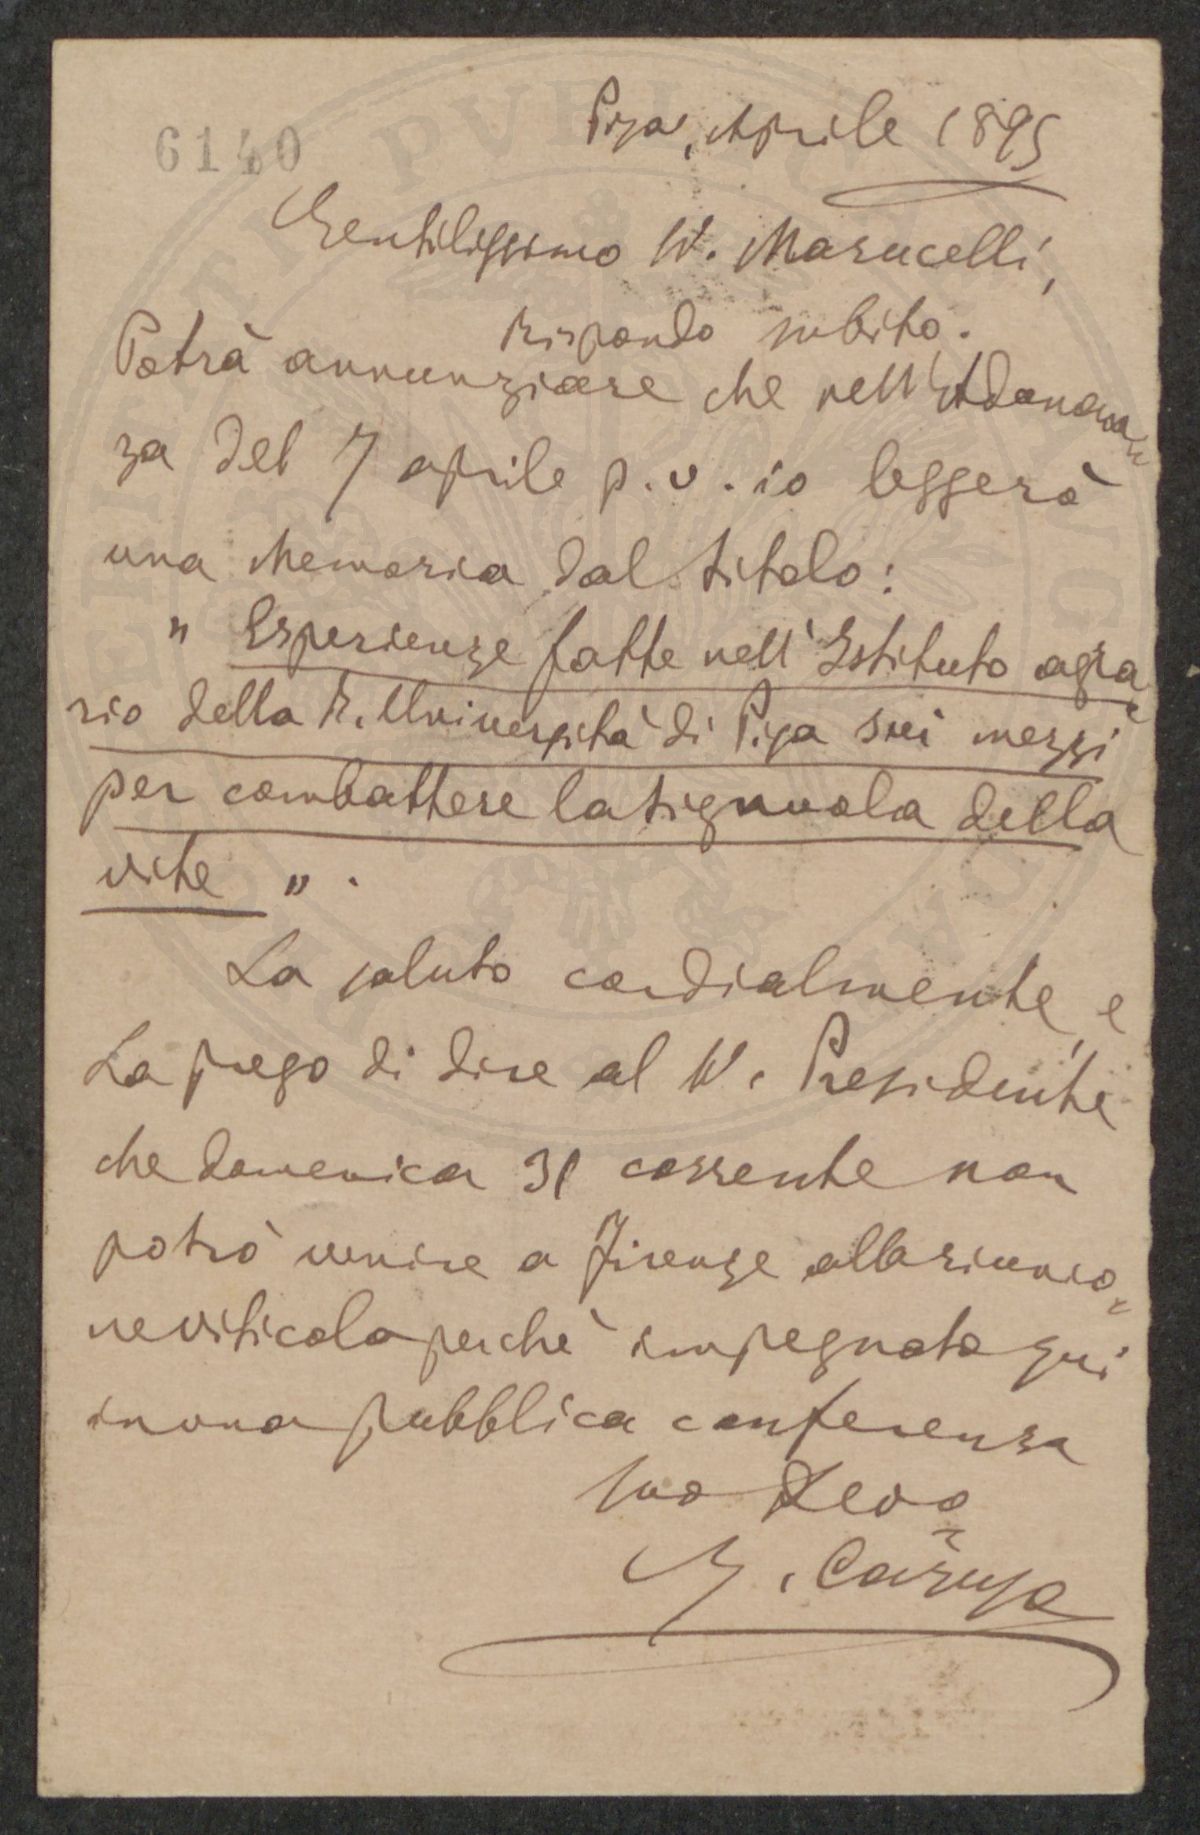 6140
Pisa, Aprile 1895
Gentilissimo S. Marucelli,
rispondo subito.
Potrà annunziare che nell'Adunan=
za del 7 aprile p.v. io leggerò
una Memoria dal titolo:
" Esperienze fatte nell'Istituto agra=
rio della R. Università di Pisa sui mezzi
per combattere la tignuola della
vite ".
La saluto cordialmente, e
La prego di dire al S. Presidente
che domenica 31 corrente non
potrò venire a Firenze alla riunio=
ne viticola perchè impegnato qui
in una pubblica conferenza
Suo Devo
G. Caruso